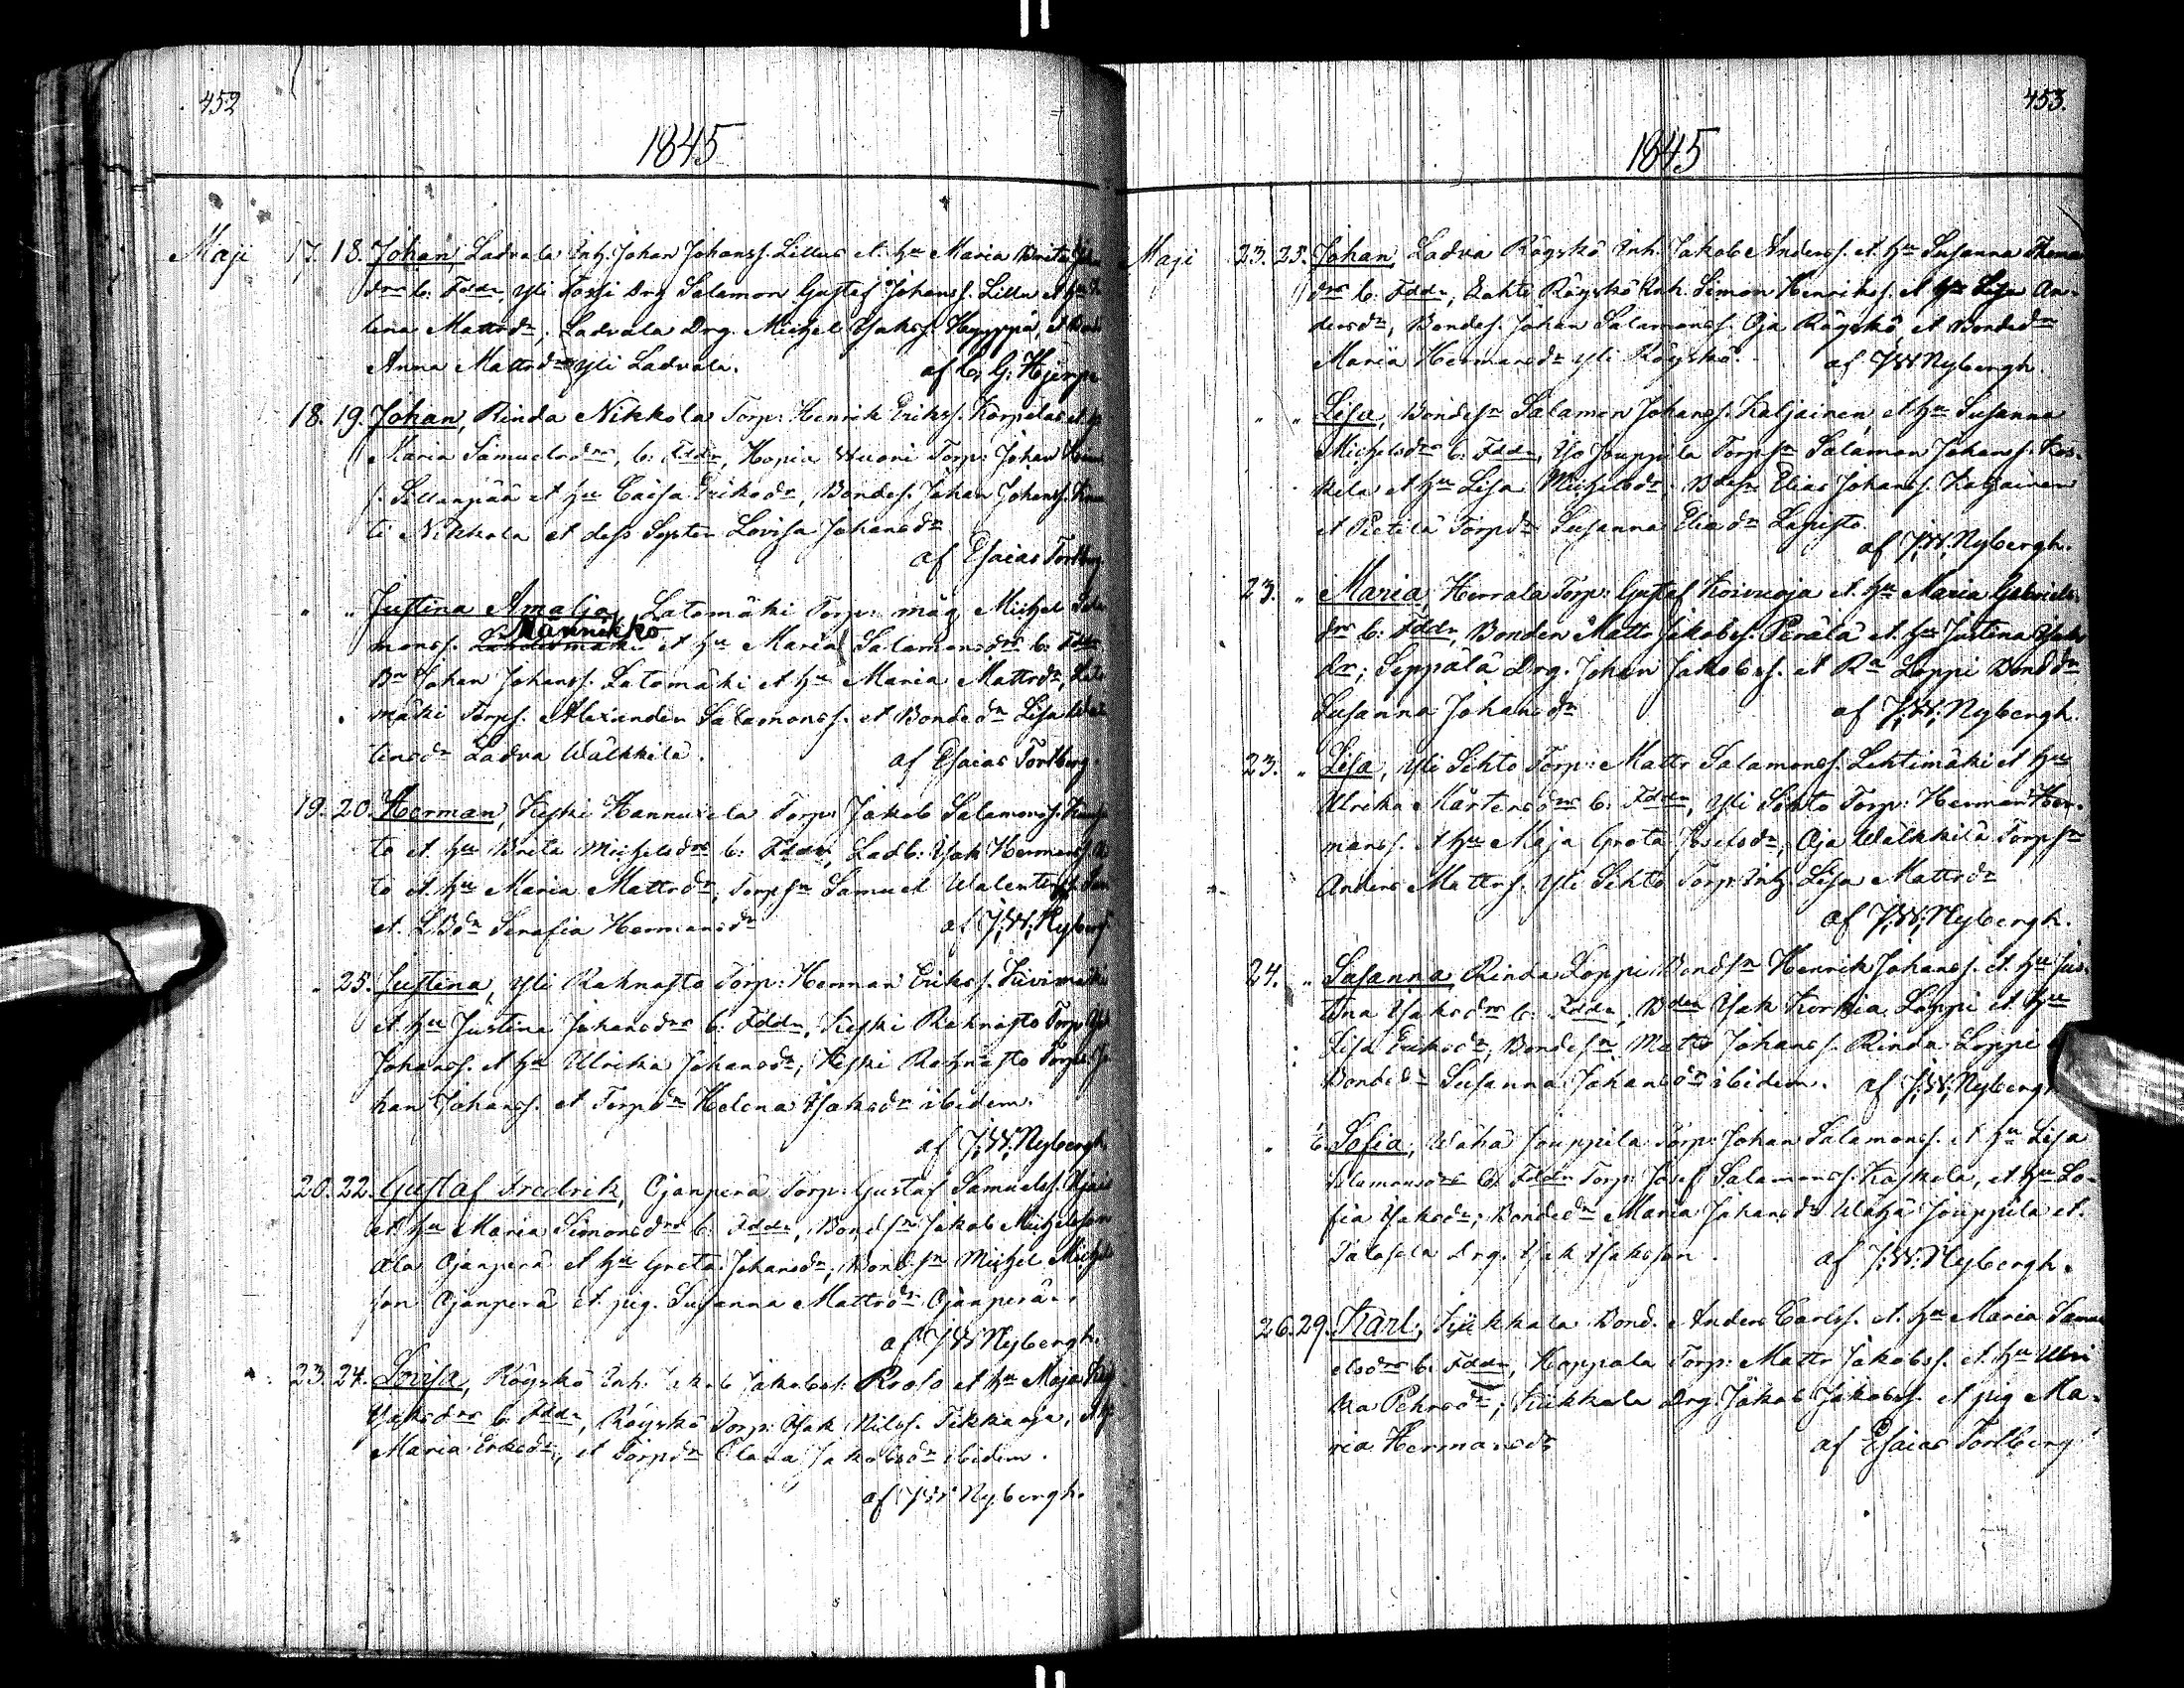 452
1845
Maji 17. 18. Johan, Ladvala Inh. Johan Johanss. Lillus et hu Maria Brita
drs b: Fddr, Yli Fossi Drg Salamon Gustaf Johanss. Lillu et hu
lina Mattsdr, Ladvala Drg. Michel Isakss. Hyyppä, et
Anna Mattsdr Yli Ladvala. af C: G: Hjerpe
18. 19. Johan, Rinda Nikkola Torp: Henrik Erikss. Korpelas et h
Maria Samuelsdrs, b: Fddr, Hopia Wuori Torp: Johan
s. Sillanpää et hu Caisa Eriksdr, Bondes. Johan Johanss.
ti Nikkola et dess Syster Lovisa Johansdr
af Esaias Tortberg.
" " Justina Amalia, Latomäki Torp: måg Michel
Männikkö
monss. et hu Maria Salamonsdrs b: Fddr
Bn Johan Johanss. Latomäki et hu Maria Mattsdr,
mäki Torps. Alexander Salamonss. et Bondedr Lisa
linsdr Ladva Wälkkilä. af Esaias Tortberg.
19. 20. Herman, Keski Hannuxela Torp: Jakob Salamonss.
to et hu Brita Michelsdrs b: Fddr, Ladb: Isak Hermanss.
to et hu Maria Mattsdr, Torpsn Samuel Walentinss.
et LBdr Serafia Hermansdr af J:W:Nyberg
" 25. Justina, Yli Rahnasto Torp: Herman Erikss. Kiivimäki
et hu Justina Johansdrs b: Fddr, Keski Rahnasto Torp:
Johanss. et hu Ulrika Johansdr, Keski Rahnasto Torps. Jo
han Johanss. et Torpdr Helena Isaksdr ibidem.
af J:W:Nybergh.
20. 22. Gustaf Fredrik, Ojanperä Torp: Gustaf Samuelss.
et hu Maria Simonsdrs b: Fddr, Bondsn Jakob Michelsson
Ala Ojanperä et hu Greta Johansdr, Bondsn Michel Michels
son Ojanperä et pig. Susanna Mattsdr Ojanperä.
af J:W:Nybergh.
23. 24. Lovisa, Röyskö Inh. Jakob Jakobss. Roolo et hu Maja
Isaksdrs b: Fddr, Röyskö Torp: Isak Nilss. Tikkaoja, et h
Maria Eriksdr, et Torpdr Clara Jakobsdr ibidem.
af J:W:Nybergh.
453.
1845
Maji 23. 25. Johan, Ladva Röyskö Inh. Jakob Anderss. et hu Susanna Thomas
drs b: Fddr, Lahti Röyskö Inh. Simon Henrikss. et hu Lisa An-
dersdr, Bondes. Johan Salamonss. Oja Röyskö et Bondedr
Maria Hermansdr Yli Röyskö. af J:W:Nybergh.
" " Lisa, Bondesn Salamon Johanss. Kaljainen, et hu Susanna
Michelsdrs b: Fddr, Iso Jouppila Torpsn Salamon Johanss. Kos-
kela et hu Lisa Michelsdr, Bdesn Elias Johanss. Kaljainen
et Pietilä Torpdr Susanna Eliedr Lapisto.
af J:W:Nybergh.
23. " Maria, Herrala Torp: Gustaf Koivuoja et hu Maria Gabriels-
drs b: Fddr, Bonden Matts Jakobss. Perälä et hu Justina Isaks
dr; Seppälä Drg. Johan Jakobss. et Ra Loppi Bonddr
Susanna Johansdr af J:W:Nybergh.
23. " Lisa, Yli Sihto Torp: Matts Salamonss. Lehtimäki et hu
Ulrika Mårtensdrs b: Fddr, Yli Sihto Torp: Herman Her-
manss. et hu Maja Greta Josefsdr, Oja Wälkkilä Torpsn
Anders Mattss. Yli Sihto Torp: Inh Lisa Mattsdr
af J:W:Nybergh.
24. " Susanna, Rinda Loppi Bondsn Henrik Johanss. et hu Jus-
tina Isaksdrs b: Fddr, Bden Isak Korkia Loppi et hu
Lisa Eriksdr, Bondesn Matts Johanss. Rinda Loppi
Bondedr Susanna Johansdr ibidem. af J:W:Nybergh
" Sofia, Wähä Jouppila Torp: Johan Salamonss. et hu Lisa
Salamonsdrs b: Fddr Torp: Josef Salamonss. Koskela, et hu So-
fia Isaksdr; Bondedr Maria Johansdr Wähä Jouppila et
Drg. Isak Isaksson. af J:W:Nybergh.
26. 29. Karl, Kiikkala Bond. Anders Carlss. et hu Maria Samu
elsdrs b: Fddr, Hoppala Torp: Matts Jakobss. et hu Ulri
ka Pehrsdr; Kiikkala Drg. Jakob Jakobss. et pig Ma-
ria Hermansdr af Esaias Tortberg